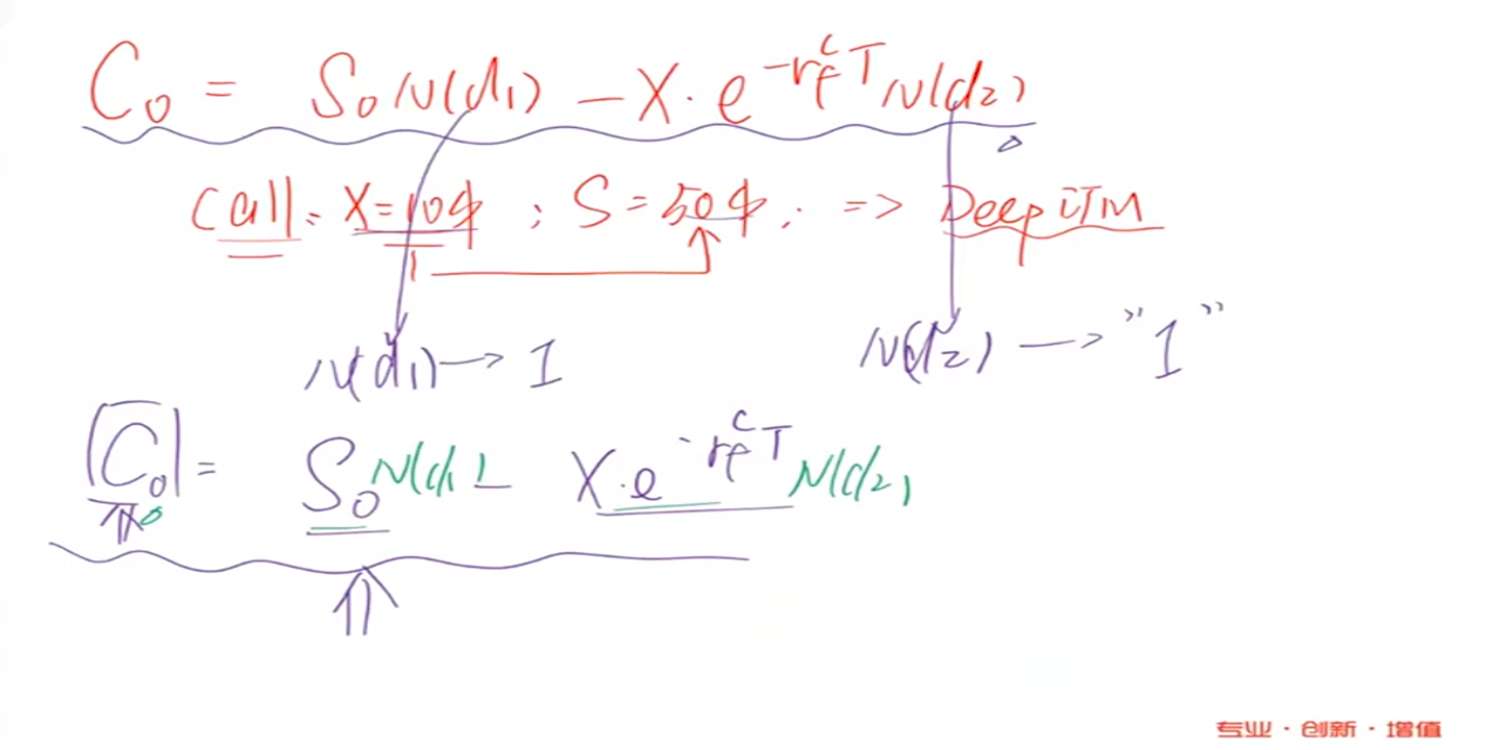 C₀ = S₀N(d₁) − X·e^{−r_f^c T}N(d₂)
Call: X=10$ ; S=50$ ; => Deep ITM
N(d₁) → 1 N(d₂) → "1"
C₀ = S₀N(d₁) − X·e^{−r_f^c T}N(d₂)
专业·创新·增值